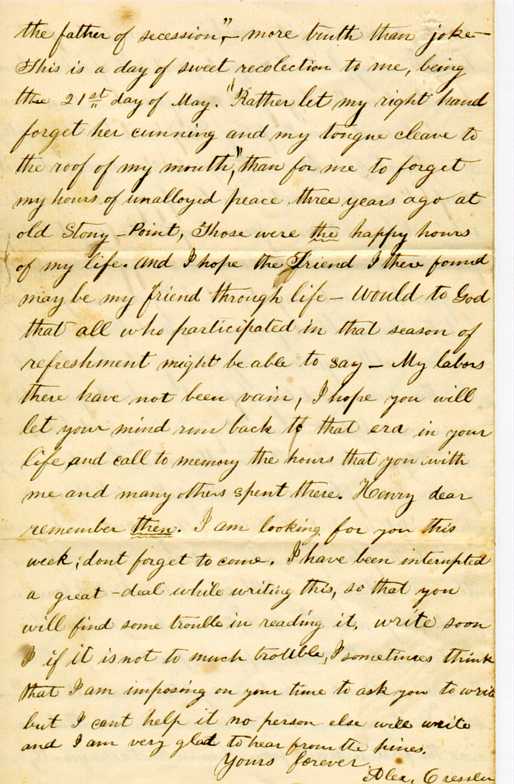 the father of secession", – more truth than joke –
This is a day of sweet recolection to me, being
the 21st day of May. "Rather let my right hand
forget her cunning and my tongue cleave to
the roof of my mouth," than for me to forget
my hours of unalloyed peace three years ago at
old Stony-Point, Those were the happy hours
of my life. and I hope the Friend I there found
may be my friend through life – would to God
that all who participated in that season of
refreshment might be able to say – My labors
there have not been vain, I hope you will
let your mind run back to that era in your
life, and call to memory the hours that you with
me and many others spent there. Henry dear
remember then. I am looking for you this
week; dont forget to come. I have been interupted
a great-deal while writing this, so that you
will find some trouble in reading it, write soon
if it is not to much trouble, I sometimes think
that I am imposing on your time to ask you to write
but I cant help it no person else will write
and I am very glad to hear from the pines.
Yours forever
Alex, Cressler